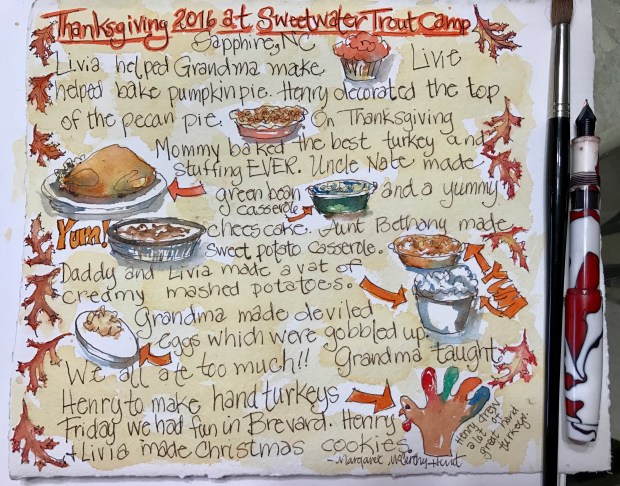 Thanksgiving 2016 at Sweetwater Trout Camp
Sapphire, NC
Livia helped Grandma make Livie
helped bake pumpkin pie. Henry decorated the top
of the pecan pie. On Thanksgiving
Mommy baked the best turkey and
stuffing EVER. Uncle Nate made
green bean
casserole and a yummy
Yum! cheescake. Aunt Bethany made
Sweet potato casserole.
Daddy and Livia made a vat of
creamy mashed potatoes. YUM
Grandma made deviled
eggs which were gobbled up.
We all ate too much!! Grandma taught
Henry to make hand turkeys
Friday we had fun in Brevard. Henry
+ Livia made Christmas cookies.
- Margaret McCarthy Hunt
Henry drew
a lot of
great hand
turkeys.